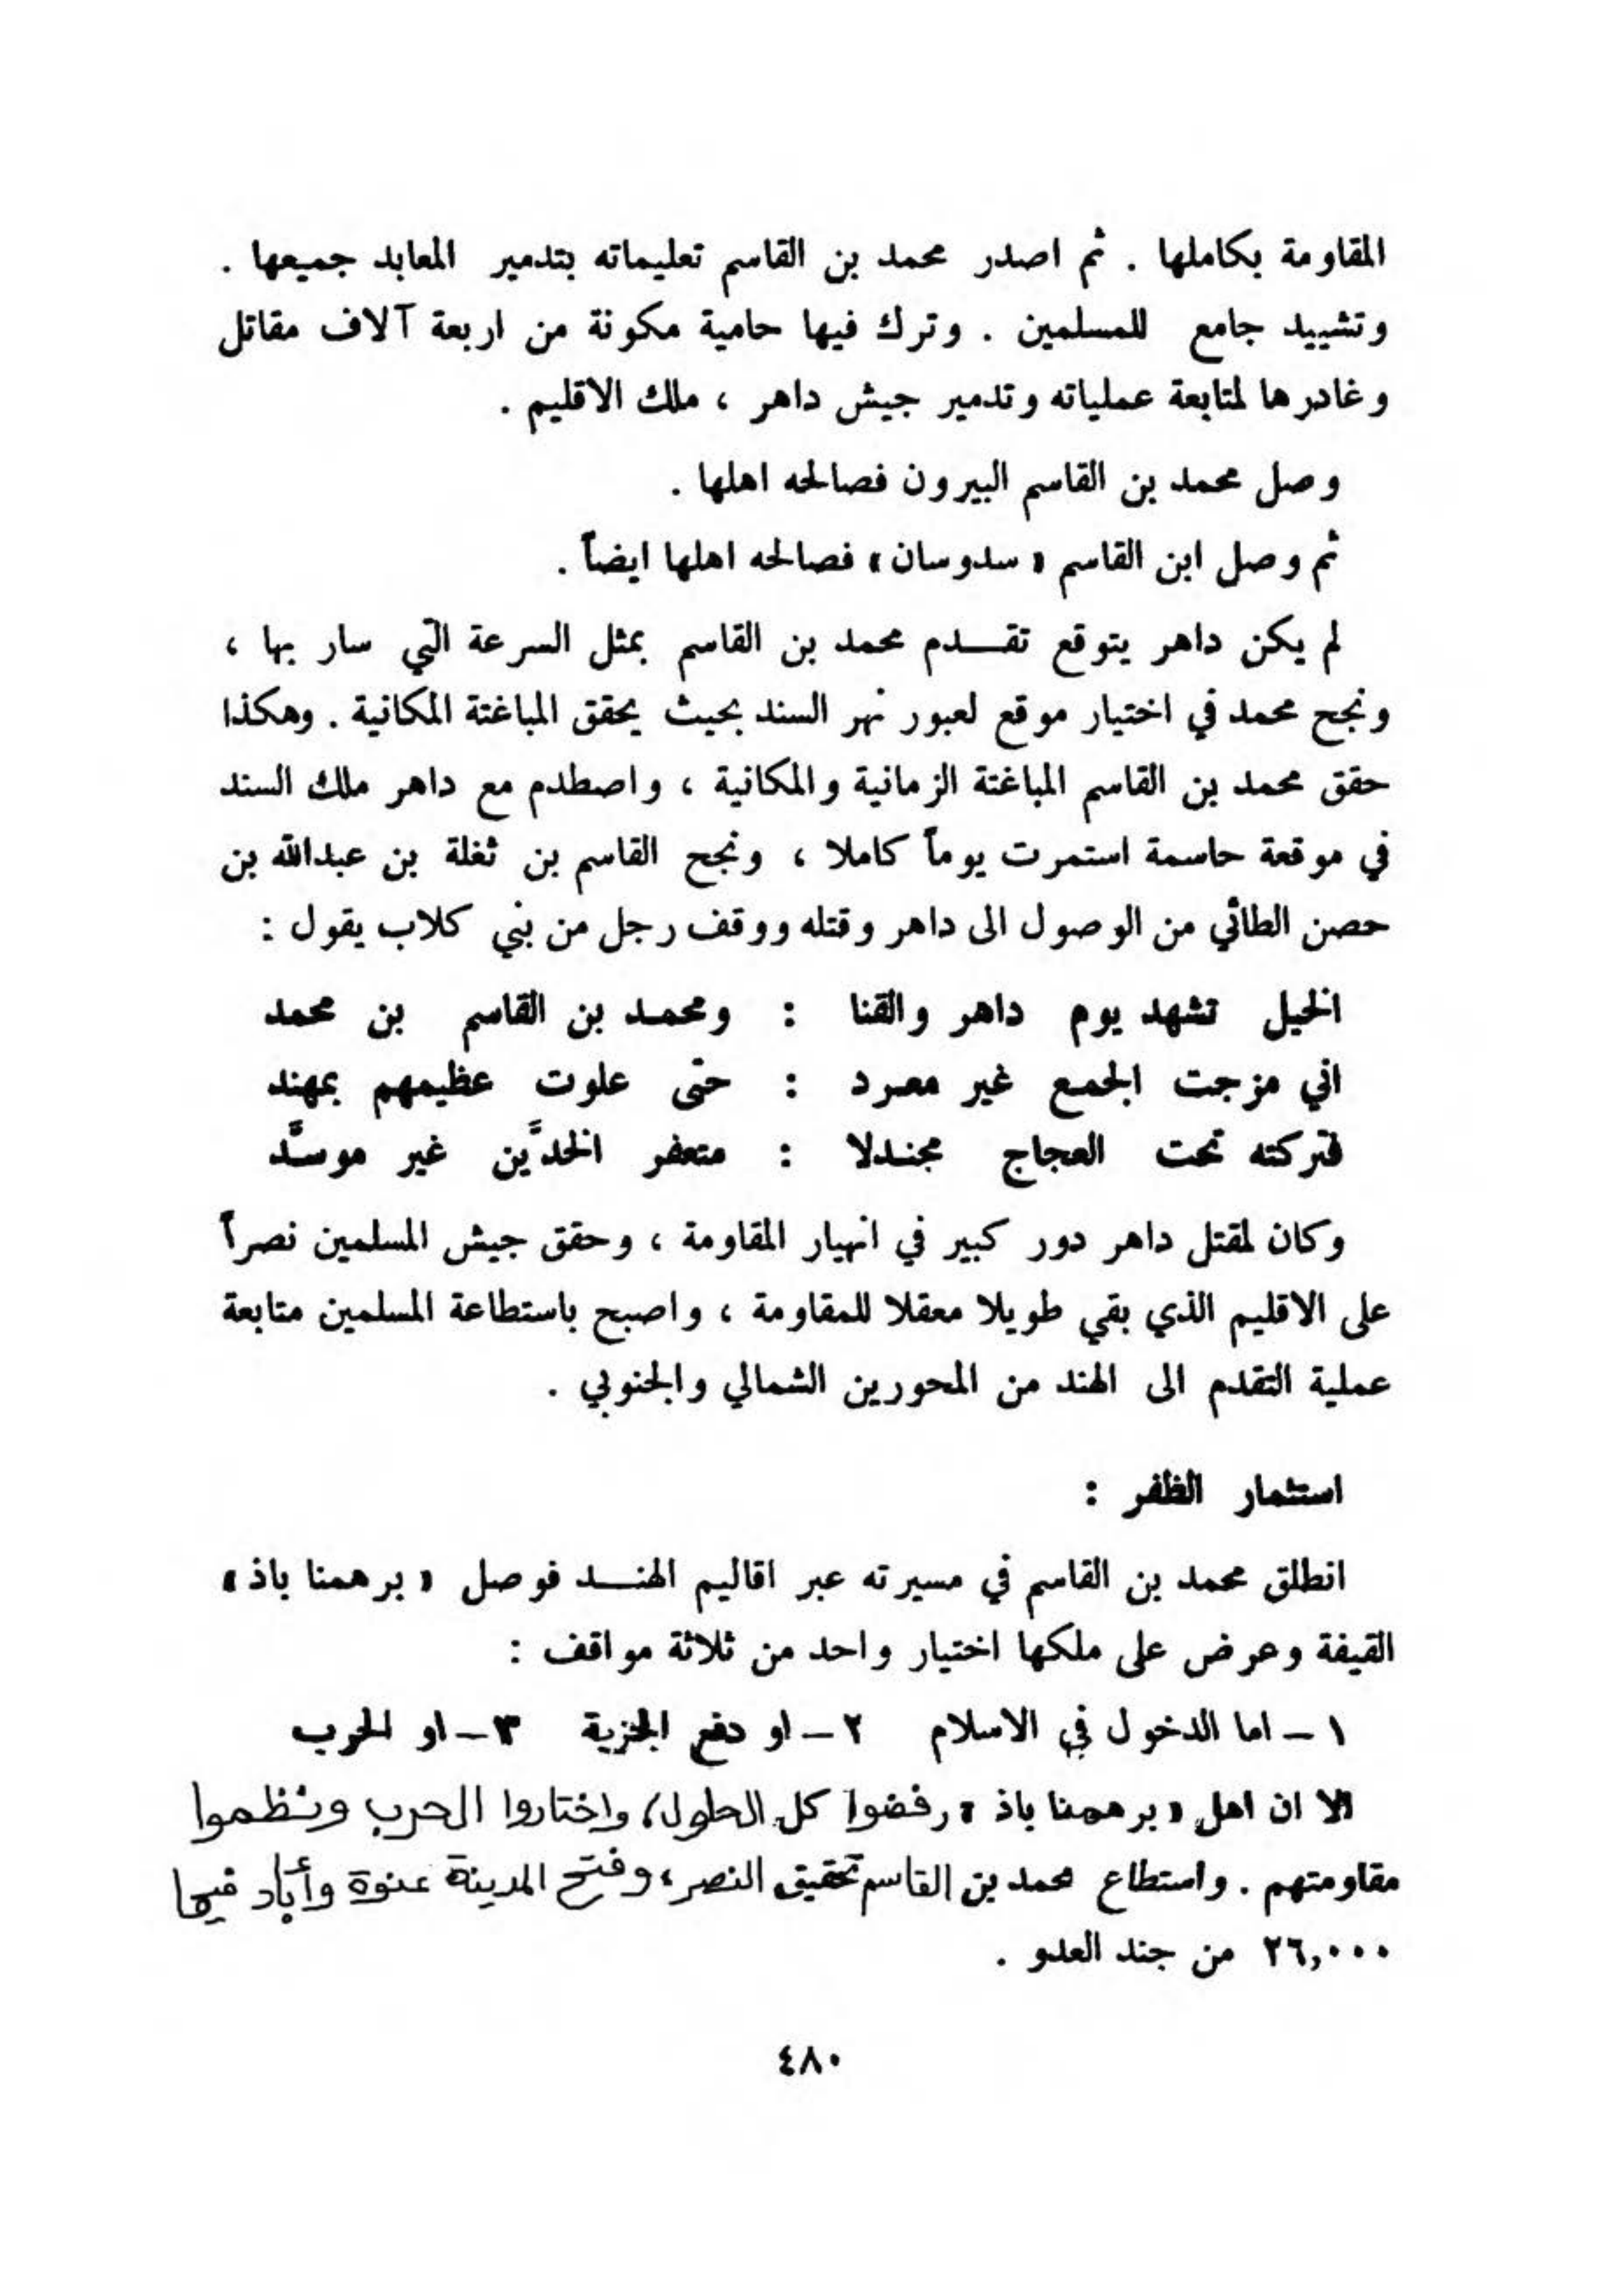 المقاومة بكاملها . ثم اصدر محمد بن القاسم تعليماته بتدمير المعابد جميعها .
وتشييد جامع للمسلمين . وترك فيها حامية مكونة من اربعة آلاف مقاتل
وغادرها لمتابعة عملياته وتدمير جيش داهر ، ملك الاقليم .
وصل محمد بن القاسم البيرون فصالحه اهلها .
ثم وصل ابن القاسم « سدوسان » فصالحه اهلها ايضاً .
لم يكن داهر يتوقع تقـــدم محمد بن القاسم بمثل السرعة التي سار بها ،
ونجح محمد في اختيار موقع لعبور نهر السند بحيث يحقق المباغتة المكانية . وهكذا
حقق محمد بن القاسم المباغتة الزمانية والمكانية ، واصطدم مع داهر ملك السند
في موقعة حاسمة استمرت يوماً كاملا ، ونجح القاسم بن ثغلة بن عبدالله بن
حصن الطائي من الوصول الى داهر وقتله ووقف رجل من بني كلاب يقول :
الخيل تشهد يوم داهر والقنا : ومحمـد بن القاسم بن محمد
اني مزجت الجمـع غير معـرد : حتى علوت عظيمهم بمهند
فتركته تحت العجاج مجنـدلا : متعفر الخدَّين غير موسـَّد
وكان لمقتل داهر دور كبير في انهيار المقاومة ، وحقق جيش المسلمين نصراً
على الاقليم الذي بقي طويلا معقلا للمقاومة ، واصبح باستطاعة المسلمين متابعة
عملية التقدم الى الهند من المحورين الشمالي والجنوبي .
استثمار الظفر :
انطلق محمد بن القاسم في مسيرته عبر اقاليم الهنـــد فوصل « برهمنا باذ »
القيفة وعرض على ملكها اختيار واحد من ثلاثة مواقف :
١ – اما الدخول في الاسلام ٢ – او دفع الجزية ٣ – او الحرب
الا ان اهل « برهمنا باذ » رفضوا كل الحلول، واختاروا الحرب ونظموا
مقاومتهم . واستطاع محمد بن القاسم تحقيق النصر، وفتح المدينة عنوة وأباد فيها
٢٦,٠٠٠ من جند العدو .
٤٨٠